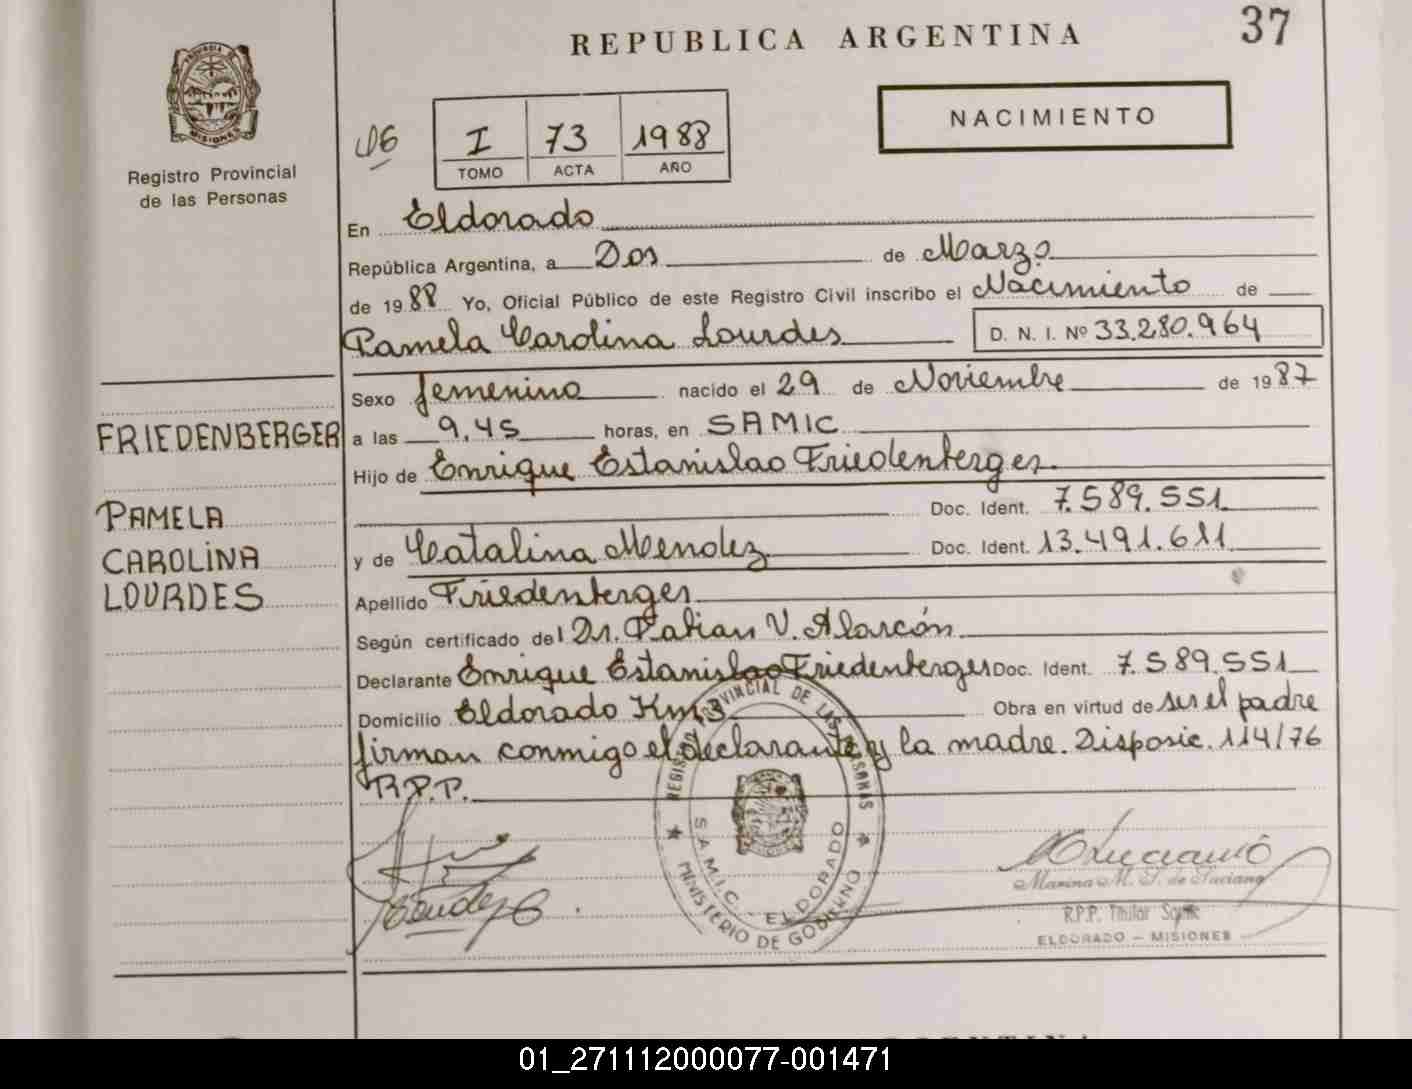 REPUBLICA ARGENTINA
37
Registro Provincial
de las Personas
I 73 1988
TOMO ACTA AÑO
NACIMIENTO
En Eldorado
República Argentina, a Dos de Marzo
de 1988 Yo, Oficial Público de este Registro Civil inscribo el Nacimiento de
Pamela Carolina Lourdes D. N. I. Nº 33.280.964
Sexo femenino nacido el 29 de Noviembre de 1987
FRIEDENBERGER
a las 9,45 horas, en SAMIC
Hijo de Enrique Estanislao Friedenberger
Doc. Ident. 7.589.551
PAMELA
CAROLINA
LOURDES
y de Catalina Mendez Doc. Ident. 13.491.611
Apellido Friedenberger
Según certificado del Dr. Fabian V. Alarcón
Declarante Enrique Estanislao Friedenberger Doc. Ident. 7.589.551
Domicilio Eldorado Km 3 Obra en virtud de ser el padre
firman conmigo el declarante y la madre. Disposic. 114/76
R.P.P.
REGISTRO PROVINCIAL DE LAS PERSONAS
S.A.M.I.C. - ELDORADO
MINISTERIO DE GOBIERNO
Marina M. S. de Luciano
R.P.P. Titular Samic
ELDORADO - MISIONES
01_271112000077-001471